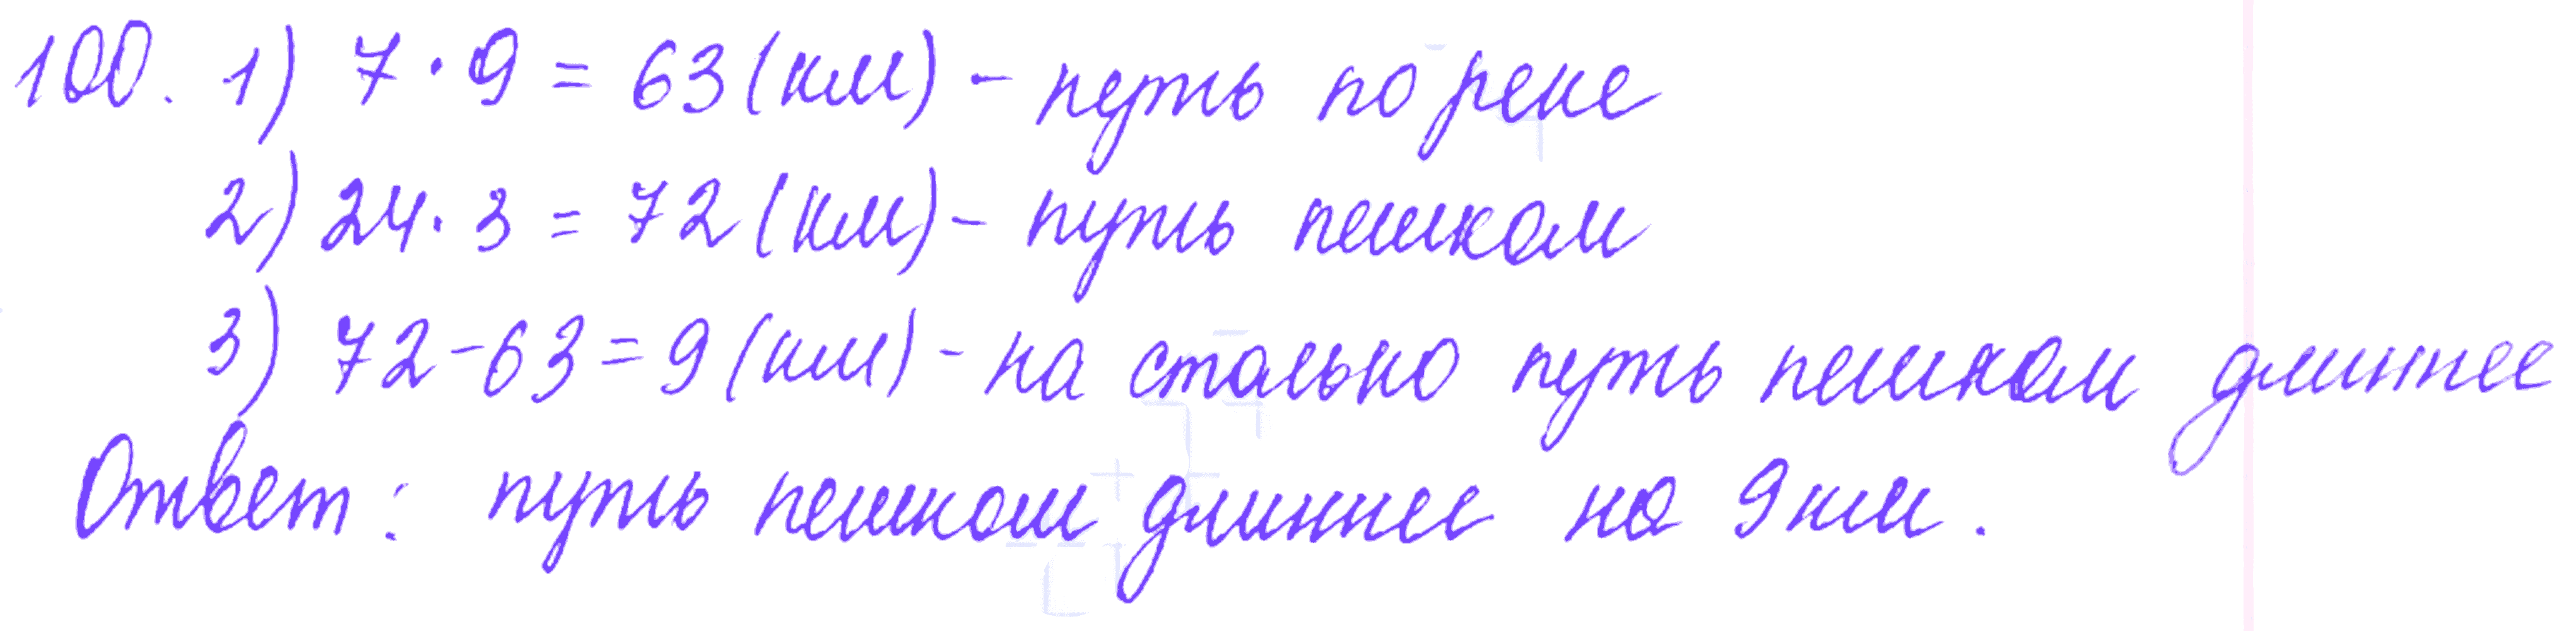 100. 1) 7 · 9 = 63 (км) - путь по реке
2) 24 · 3 = 72 (км) - путь пешком
3) 72 - 63 = 9 (км) - на столько путь пешком длиннее
Ответ: путь пешком длиннее на 9 км.